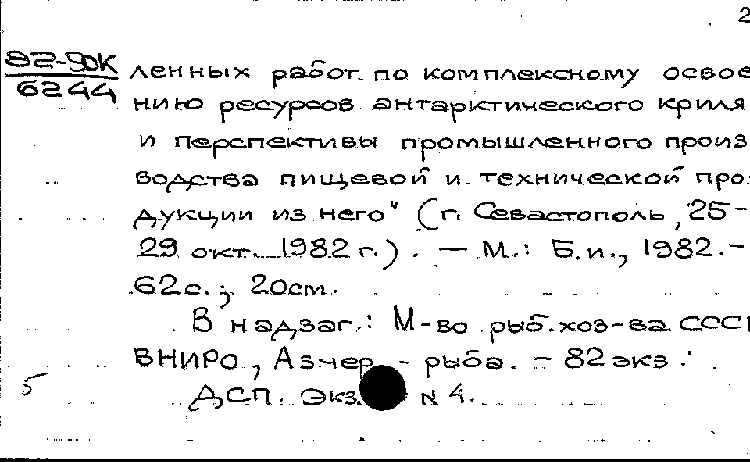 2
82-5ОК
6244
ленных работ по комплексному освое
нию ресурсов антарктического криля
и перспективы промышленного произ
водства пищевой и технической про-
дукции из него" (г. Севастополь, 25-
29 окт. 1982 г.). - М.: Б.и., 1982. -
62с.; 20см.
В надзаг.: М-во рыб. хоз-ва СССР
ВНИРО, Азчер - рыба. - 82 экз.
5
ДСП. Экз. N 4.